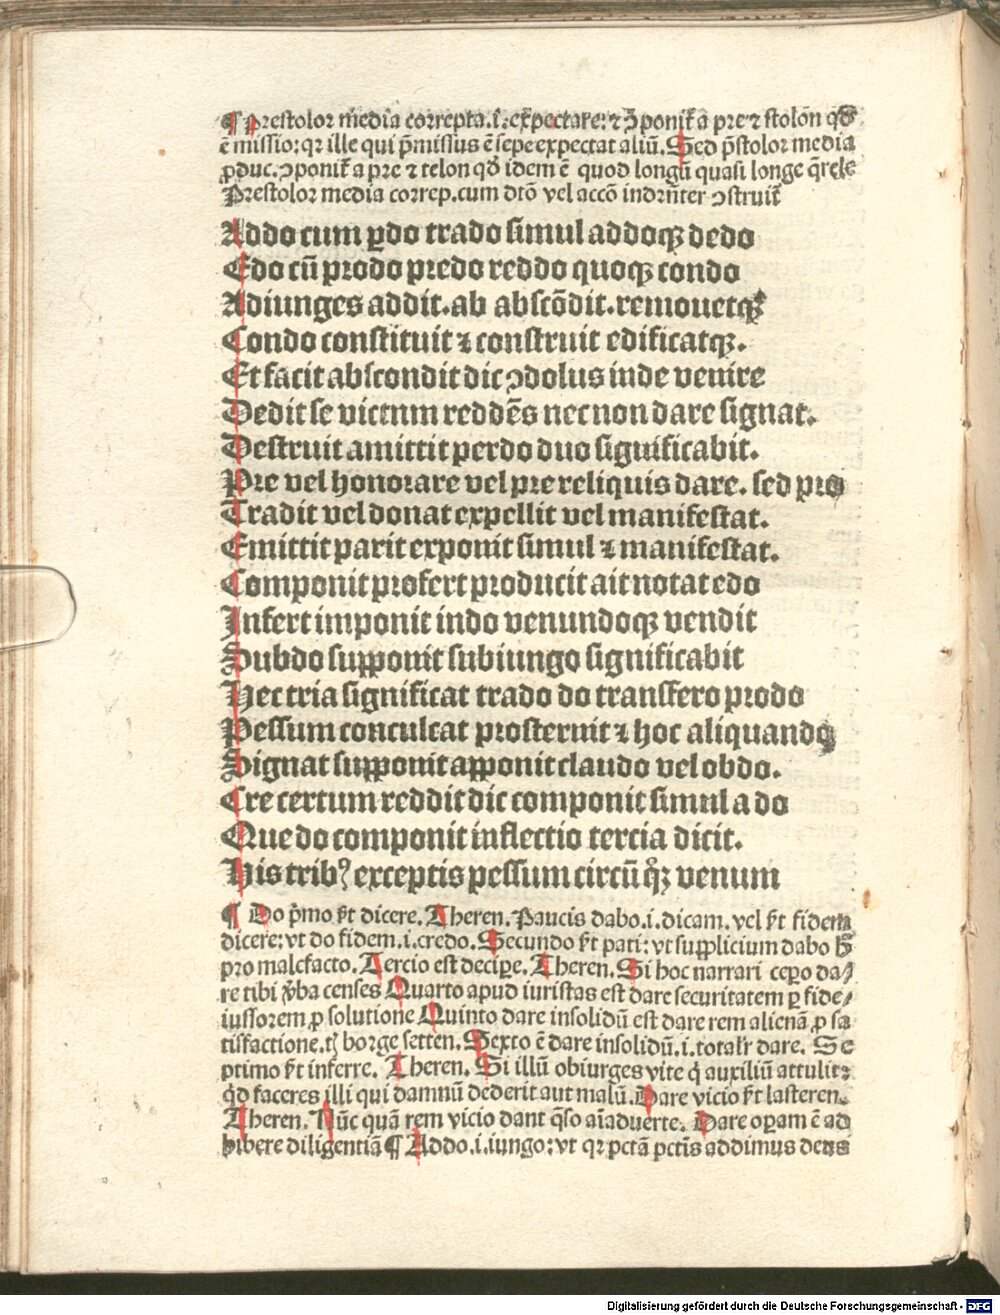 ¶ Prestolor media correpta.i.expectare: ⁊ ↄponit̃ a pre ⁊ stolon qđ
ē missio: qꝛ ille qui p̄missus ē sepe expectat aliū. Sed p̄stolor media
ꝓduc. ↄponit̃ a pre ⁊ telon qđ idem ē quod longū quasi longe q̄rele
Prestolor media correp.cum dtō vel accō indrn̄ter ↄstruit̃
Addo cum ꝑdo trado simul addoqꝫ dedo
Edo cū prodo predo reddo quoqꝫ condo
Adiunges addit.ab abscōdit.remouetqꝫ
Condo constituit ⁊ construit edificatqꝫ.
Et facit abscondit dic ↄdolus inde venire
Dedit se victum reddēs necnon dare signat.
Destruit amittit perdo duo significabit.
Pre vel honorare vel pre reliquis dare. sed pro
Tradit vel donat expellit vel manifestat.
Emittit parit exponit simul ⁊ manifestat.
Componit profert producit ait notat edo
Infert imponit indo venundoqꝫ vendit
Subdo supponit subiungo significabit
Hec tria significat trado do transfero prodo
Pessum conculcat prosternit ⁊ hoc aliquando
Signat supponit apponit claudo vel obdo.
Cre certum reddit dic componit simul a do
Que do componit inflectio tercia dicit.
His tribꝰ exceptis pessum circū qͣꝫ venum
¶ Do p̄mo ē̄t dicere. Theren. Paucis dabo.i.dicam. vel ē̄t fidem
dicere: vt do fidem.i.credo. Secundo ē̄t pati: vt supplicium dabo ħ
pro malefacto. Tercio est decipe. Theren. Si hoc narrari cepo da⸗
re tibi v̄ba censes Quarto apud iuristas est dare securitatem ꝑ fide⸗
iussorem ꝓ solutione Quinto dare insolidū est dare rem alienā ꝓ sa
tisfactione. borge setten. Sexto ē dare insolidū.i.totalr̄ dare. Se
ptimo ē̄t inferre. Theren. Si illū obiurges vite q̄ auxiliū attulit:
qd̄ faceres illi qui damnū dederit aut malū. Dare vicio ē̄t lasteren.
Theren. Nūc quā rem vicio dant q̄so aīaduerte. Dare opam ē ad
hibere diligentiā ¶ Addo.i.iungo: vt qꝛ pctā pctīs addimus deus
Digitalisierung gefördert durch die Deutsche Forschungsgemeinschaft - DFG